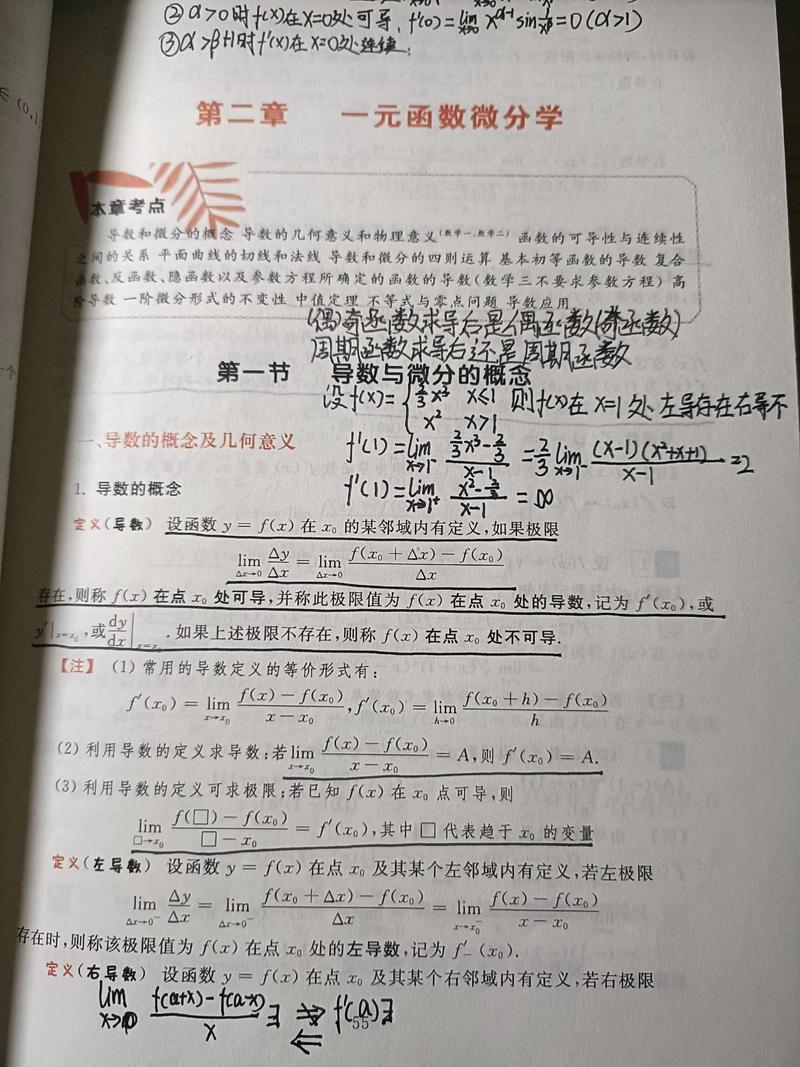 ② α>0时f(x)在x=0处可导, f'(0)=lim x→0 x^{α-1} sin 1/x^β =0(α>1)
③ α>β+1时f'(x)在x=0处连续.
∈ (0,1
第二章 一元函数微分学
本章考点
导数和微分的概念 导数的几何意义和物理意义(数学一、数学二) 函数的可导性与连续性
之间的关系 平面曲线的切线和法线 导数和微分的四则运算 基本初等函数的导数 复合
函数、反函数、隐函数以及参数方程所确定的函数的导数(数学三不要求参数方程) 高
阶导数 一阶微分形式的不变性 中值定理 不等式与零点问题 导数应用
(偶)奇函数求导后是偶函数(奇函数)
周期函数求导后还是周期函数
第一节 导数与微分的概念
设f(x)={ 2/3 x³ x≤1 则f(x)在x=1处左导存在右导不
x² x>1
一、导数的概念及几何意义
f'(1)=lim x→1⁻ (2/3 x³ - 2/3)/(x-1) = 2/3 lim x→1⁻ (x-1)(x²+x+1)/(x-1) =2
1. 导数的概念
f'(1)=lim x→1⁺ (x² - 2/3)/(x-1) = ∞
定义(导数) 设函数 y = f(x) 在 x₀ 的某邻域内有定义,如果极限
lim Δx→0 Δy/Δx = lim Δx→0 (f(x₀ + Δx) − f(x₀))/Δx
存在,则称 f(x) 在点 x₀ 处可导,并称此极限值为 f(x) 在点 x₀ 处的导数,记为 f'(x₀),或
y'|x=x₀,或 dy/dx|x=x₀. 如果上述极限不存在,则称 f(x) 在点 x₀ 处不可导.
【注】 (1) 常用的导数定义的等价形式有:
f'(x₀) = lim x→x₀ (f(x) − f(x₀))/(x − x₀), f'(x₀) = lim h→0 (f(x₀ + h) − f(x₀))/h
(2) 利用导数的定义求导数:若 lim x→x₀ (f(x) − f(x₀))/(x − x₀) = A,则 f'(x₀) = A.
(3) 利用导数的定义可求极限:若已知 f(x) 在 x₀ 点可导,则
lim □→x₀ (f(□) − f(x₀))/(□ − x₀) = f'(x₀),其中 □ 代表趋于 x₀ 的变量
定义(左导数) 设函数 y = f(x) 在点 x₀ 及其某个左邻域内有定义,若左极限
lim Δx→0⁻ Δy/Δx = lim Δx→0⁻ (f(x₀ + Δx) − f(x₀))/Δx = lim x→x₀⁻ (f(x) − f(x₀))/(x − x₀)
存在时,则称该极限值为 f(x) 在点 x₀ 处的左导数,记为 f'₋(x₀).
定义(右导数) 设函数 y = f(x) 在点 x₀ 及其某个右邻域内有定义,若右极限
lim x→0 (f(a+x)−f(a−x))/x ∃ ⇏ f'(a)∃
⇐
55